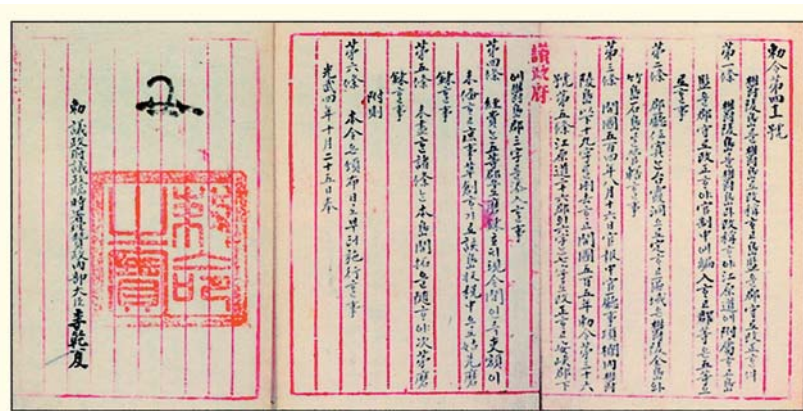 勅令第四十一號
鬱陵島를鬱島로改稱ᄒᆞ고島監을郡守로改正ᄒᆞᆫ件
第一條 鬱陵島를鬱島라改稱ᄒᆞ야江原道에附屬ᄒᆞ고島
監을郡守로改正ᄒᆞ야官制中에編入ᄒᆞ고郡等은五等으
로ᄒᆞᆯ事
第二條 郡廳位寘는台霞洞으로定ᄒᆞ고區域은鬱陵全島와
竹島石島를管轄ᄒᆞᆯ事
第三條 開國五百四年八月十六日官報中官廳事項欄內鬱
陵島以下十九字를刪去ᄒᆞ고開國五百五年勅令第三十六
號第五條江原道二十六郡의六字는七字로改正ᄒᆞ고安峽郡下
議政府
에鬱島郡三字를添入ᄒᆞᆯ事
第四條 經費는五等郡으로磨鍊ᄒᆞ되現今間인즉吏額이
未備ᄒᆞ고庶事草創ᄒᆞ기로該島收稅中으로姑先磨
鍊ᄒᆞᆯ事
第五條 未盡ᄒᆞᆫ諸條는本島開拓을隨ᄒᆞ야次第磨
鍊ᄒᆞᆯ事
附則
第六條 本令은頒布日로부터施行ᄒᆞᆯ事
光武四年十月二十五日奉
勅命之寶
勅 議政府議政臨時署理贊政內部大臣李乾夏